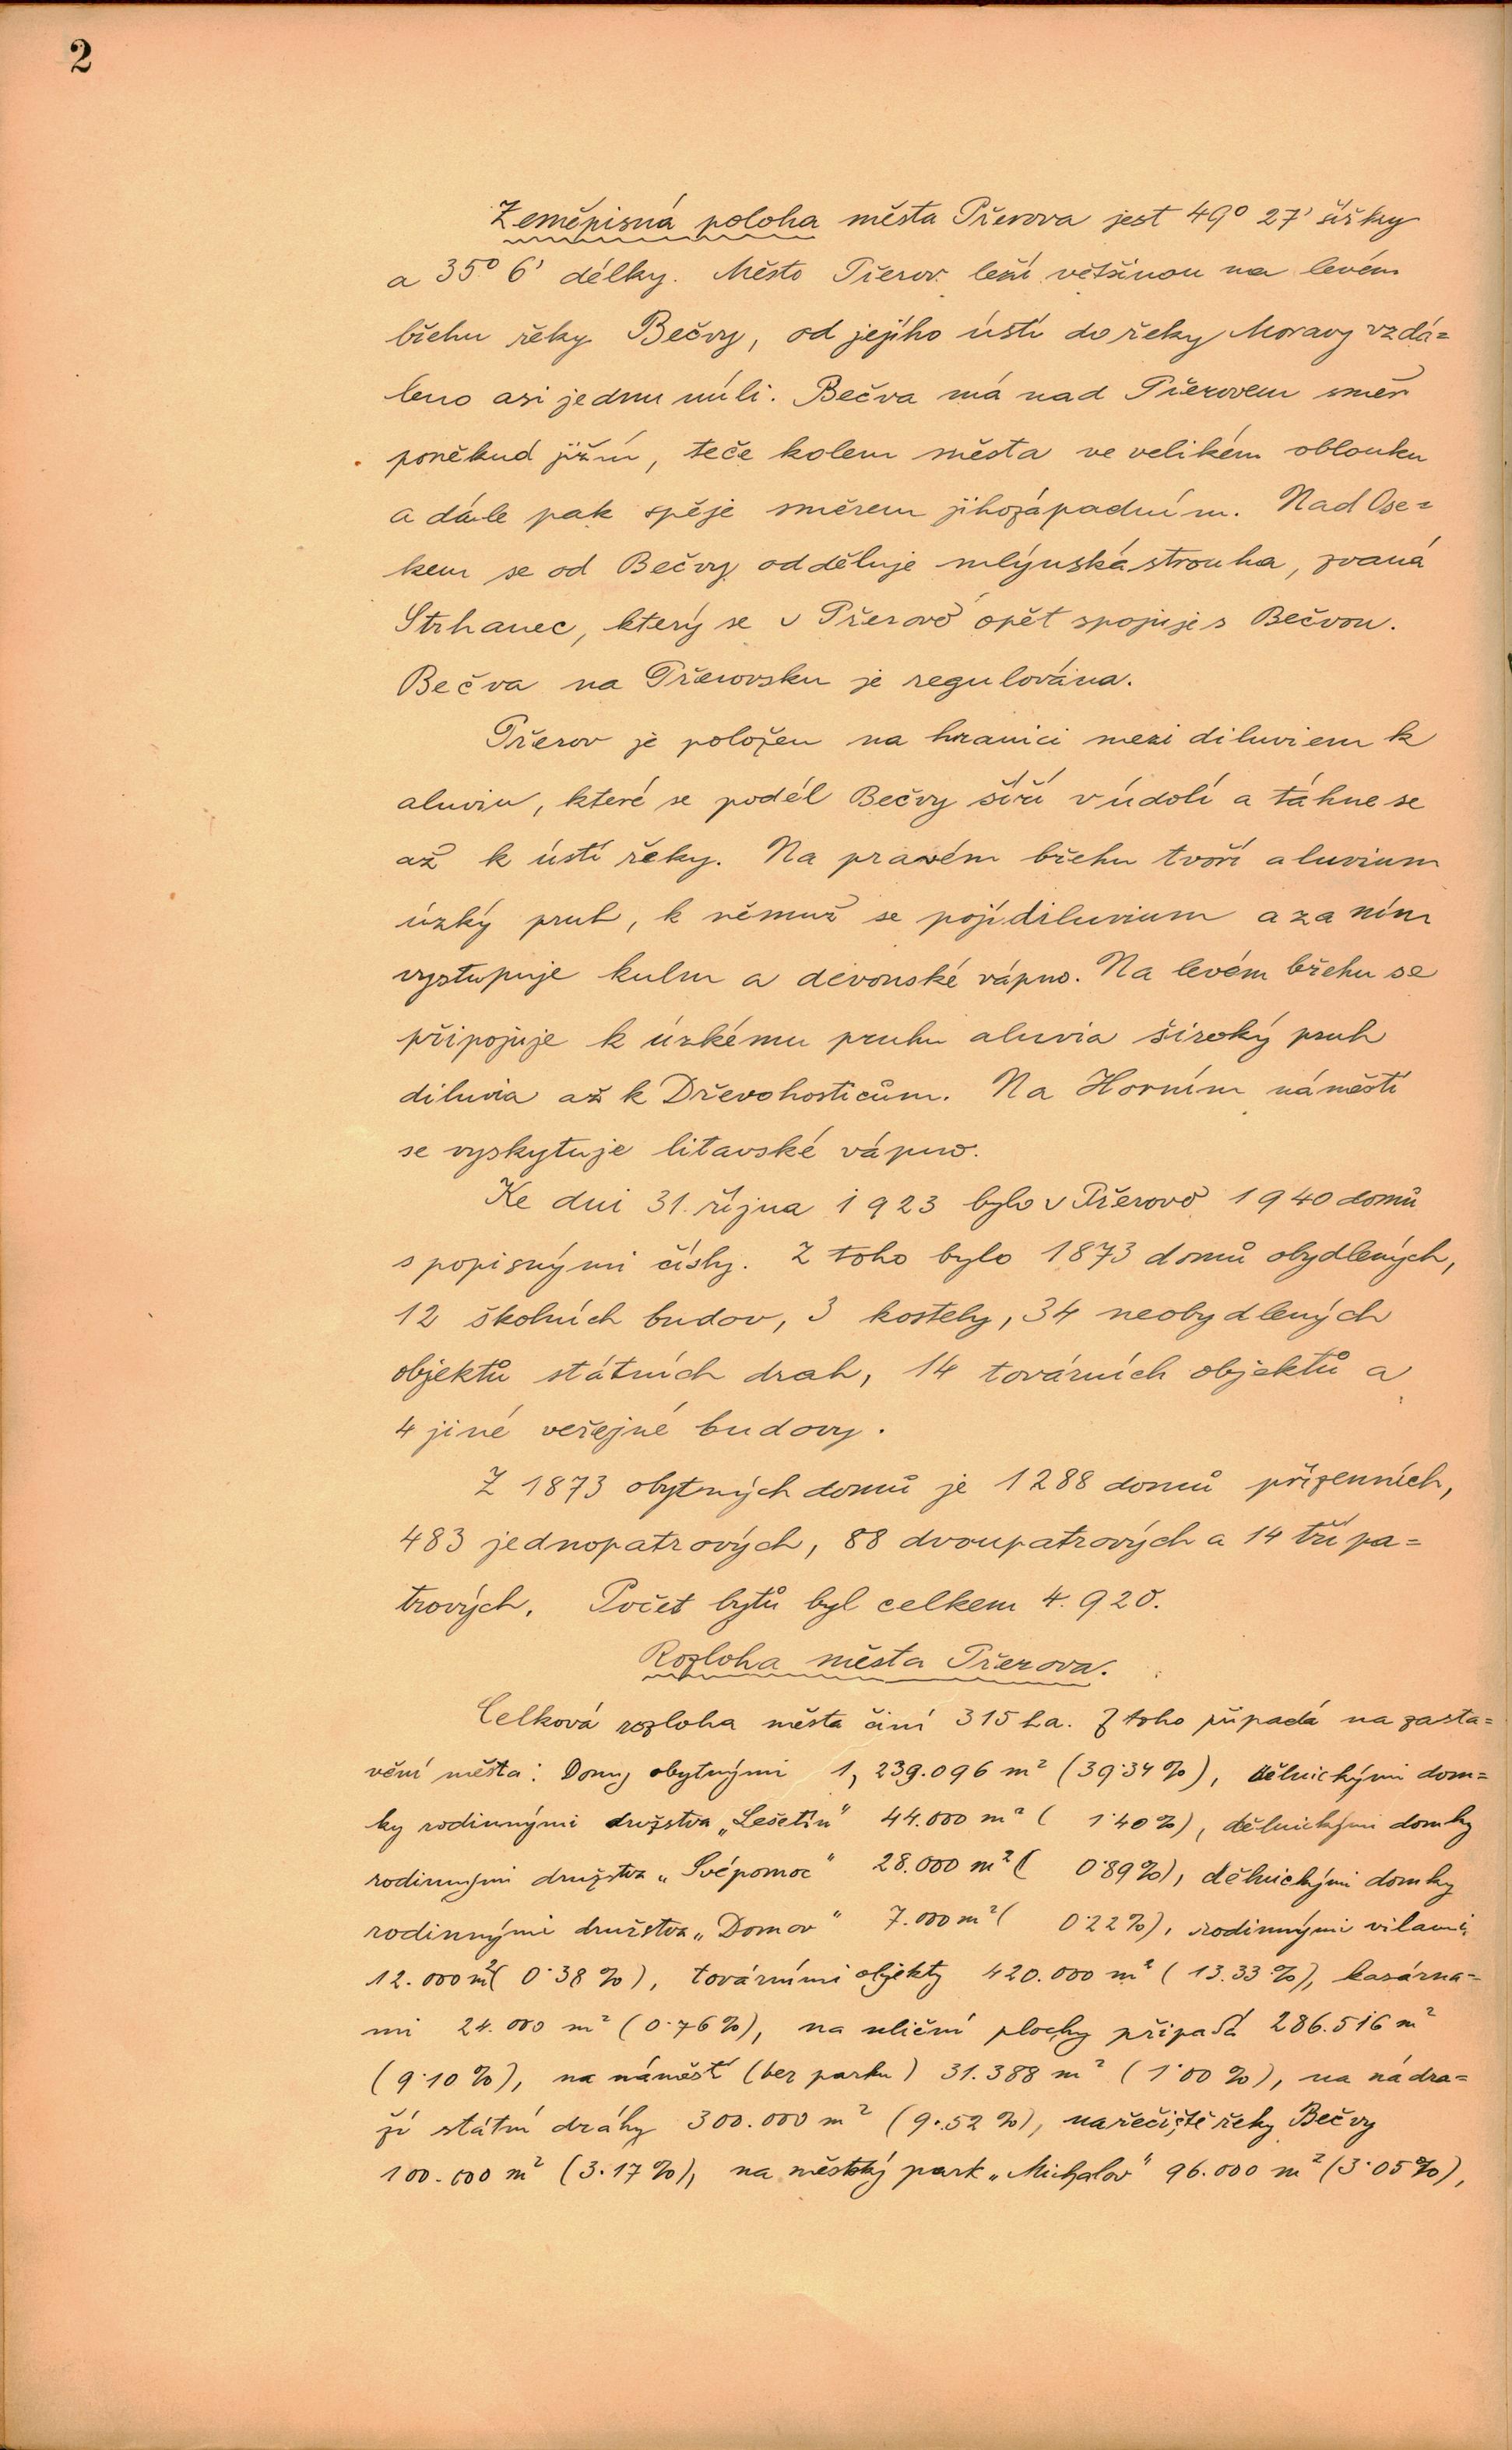 2
Zeměpisná poloha města Přerova jest 49° 27' šířky
a 35° 6' délky. Město Přerov leží většinou na levém
břehu řeky Bečvy, od jejího ústí do řeky Moravy vzdá=
leno asi jednu míli. Bečva má nad Přerovem směr
poněkud jižní, teče kolem města ve velikém oblouku
a dále pak spěje směrem jihozápadním. Nad Ose=
kem se od Bečvy odděluje mlýnská strouha, zvaná
Strhanec, který se v Přerově opět spojuje s Bečvou.
Bečva na Přerovsku je regulována.
Přerov je položen na hranici mezi diluviem k
aluviu, které se podél Bečvy šíří v údolí a táhne se
až k ústí řeky. Na pravém břehu tvoří aluvium
úzký pruh, k němuž se pojí diluvium a za ním
vystupuje kulm a devonské vápno. Na levém břehu se
připojuje k úzkému pruhu aluvia široký pruh
diluvia až k Dřevohosticům. Na Horním náměstí
se vyskytuje litavské vápno.
Ke dni 31. října 1923 bylo v Přerově 1940 domů
s popisnými čísly. Z toho bylo 1873 domů obydlených,
12 školních budov, 3 kostely, 34 neobydlených
objektů státních drah, 14 továrních objektů a
4 jiné veřejné budovy.
Z 1873 obytných domů je 1288 domů přízemních,
483 jednopatrových, 88 dvoupatrových a 14 třípa=
trových. Počet bytů byl celkem 4.920.
Rozloha města Přerova.
Celková rozloha města činí 315 ha. Z toho připadá na zasta=
vění města: Domy obytnými 1,239.096 m² (39·34%), dělnickými dom=
ky rodinnými družstva „Lešetín" 44.000 m² ( 1·40%), dělnickými domky
rodinnými družstva „Svépomoc" 28.000 m² ( 0·89%), dělnickými domky
rodinnými družstva „Domov" 7.000 m² ( 0·22%), rodinnými vilami
12.000 m² ( 0·38%), továrními objekty 420.000 m² (13.33%), kasárna=
mi 24.000 m² (0·76%), na uliční plochy připadá 286.516 m²
(9·10%), na náměstí (bez parku) 31.388 m² (1·00%), na nádra=
ží státní dráhy 300.000 m² (9.52%), na řečiště řeky Bečvy
100.000 m² (3.17%), na městský park „Michalov" 96.000 m² (3·05%),